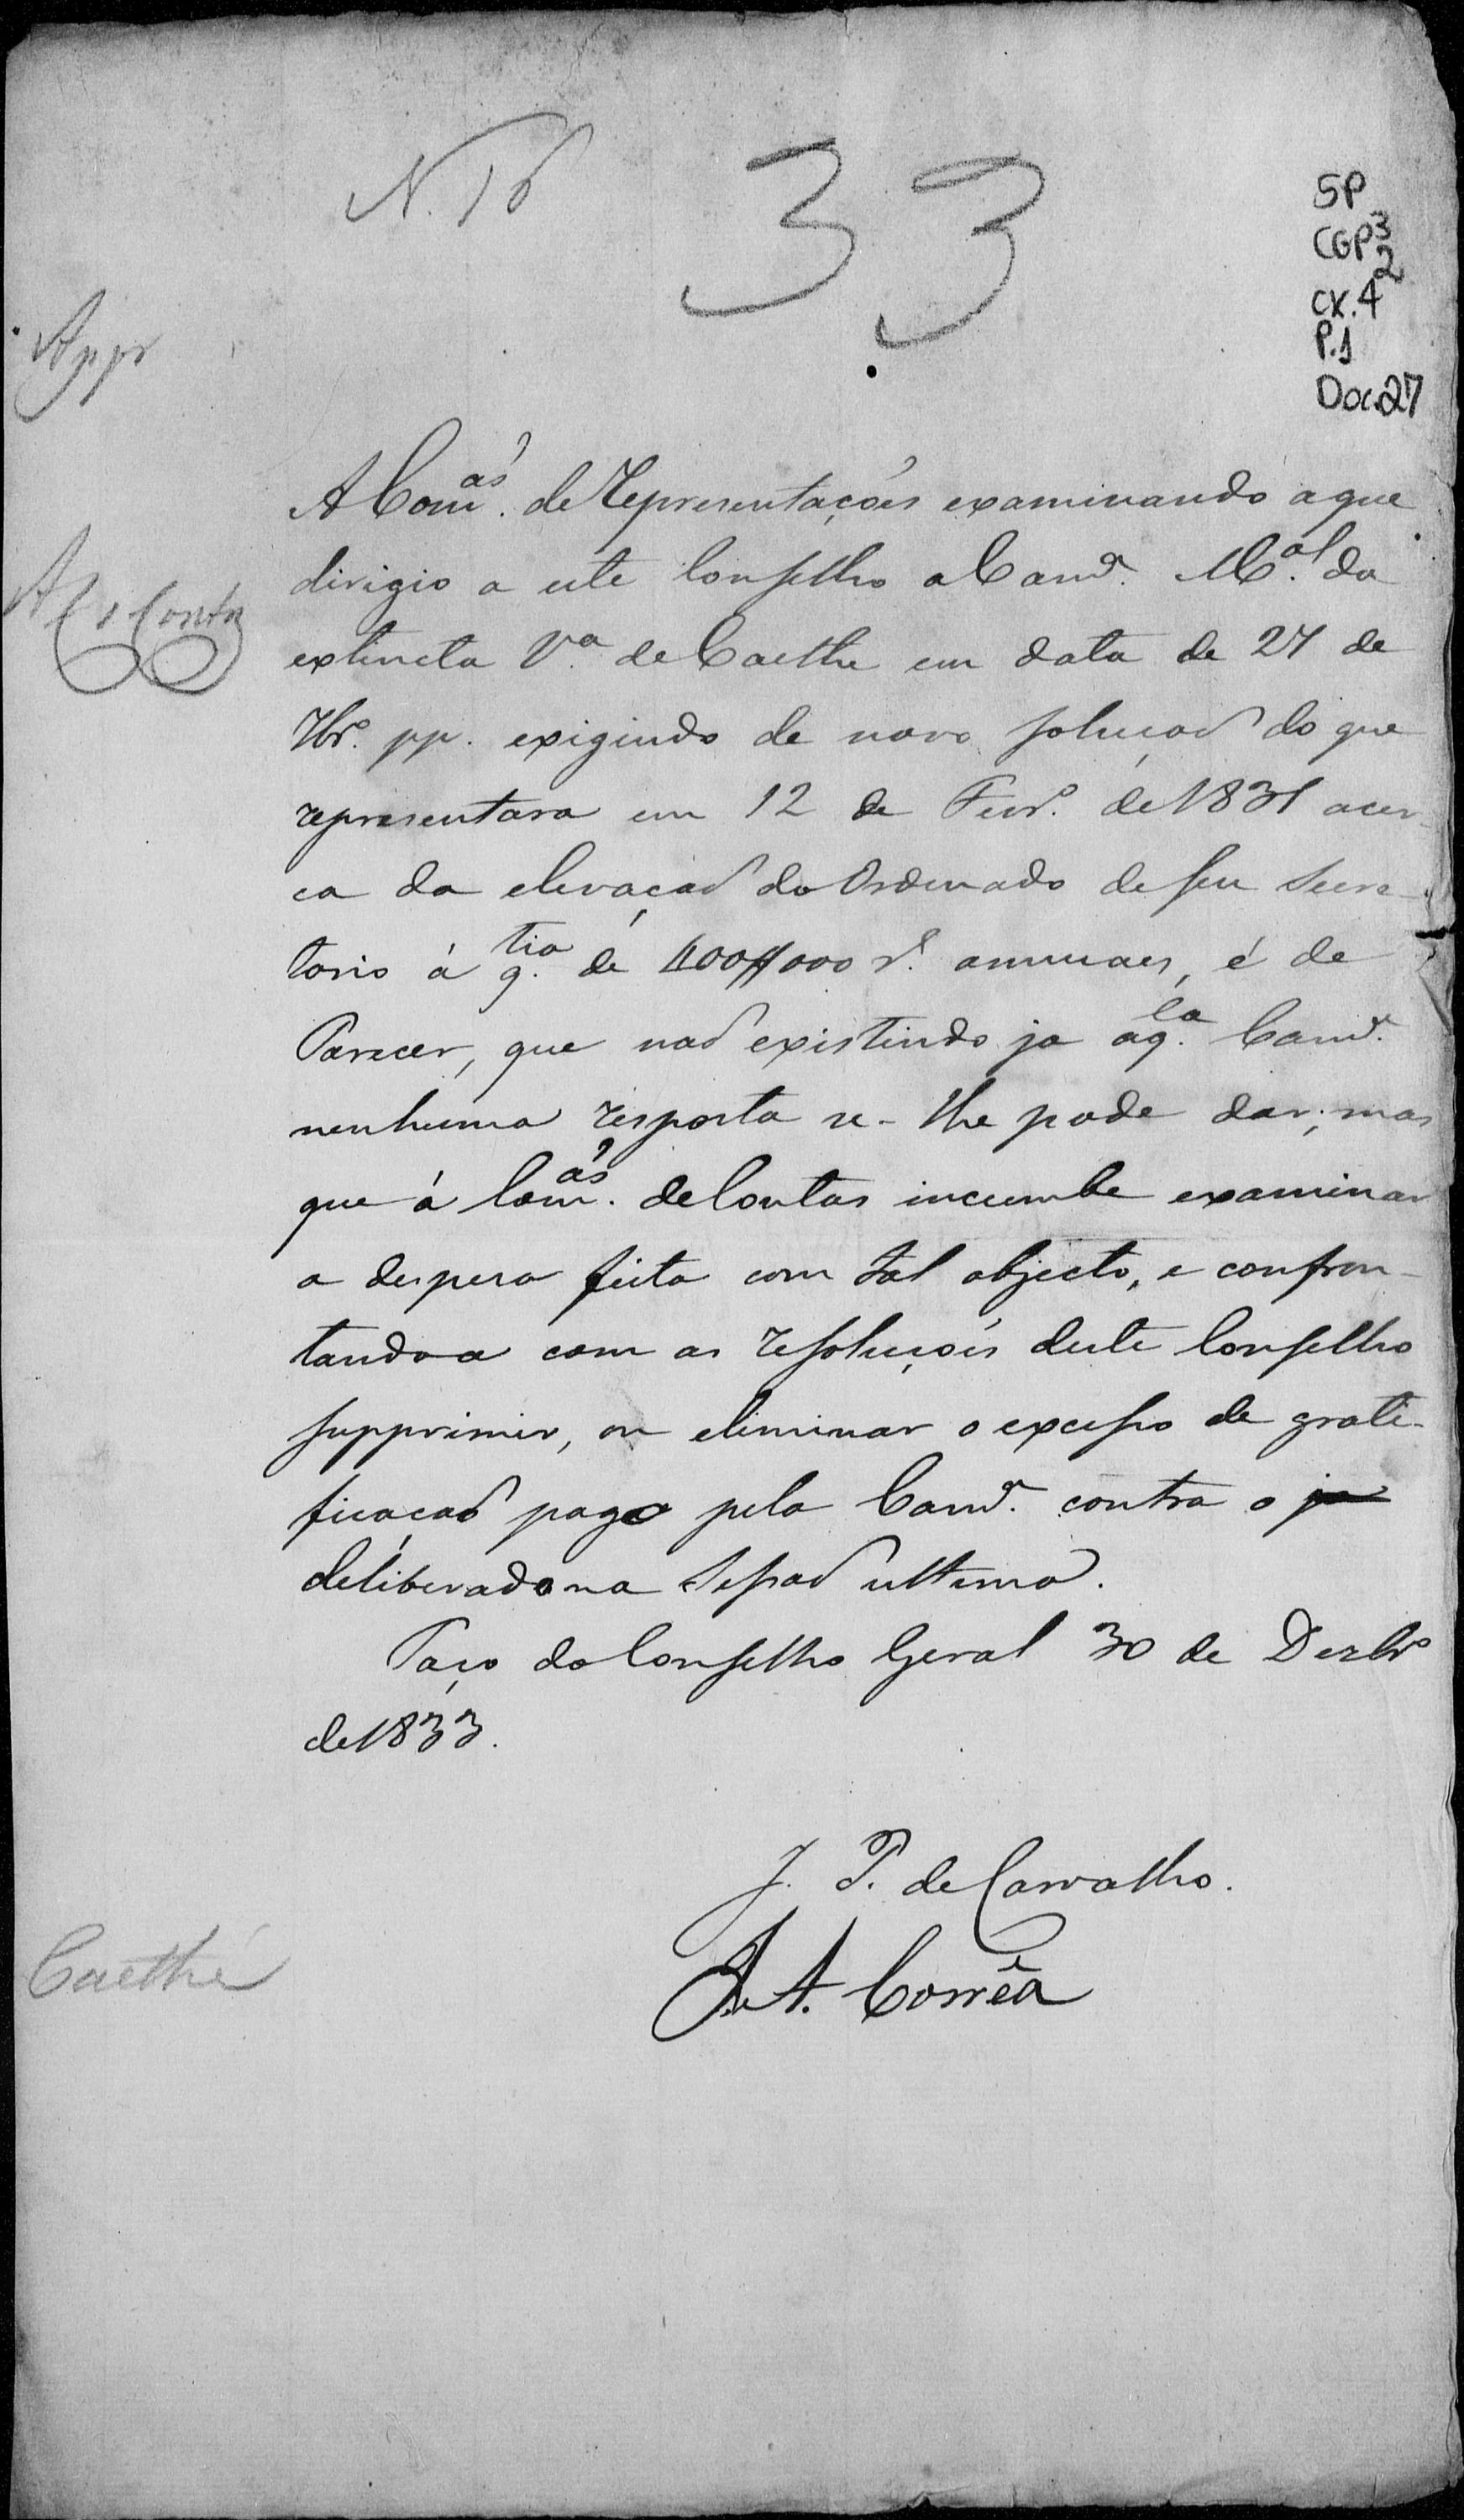 N. 16
33
SP
CGP 3
2
CX. 4
P. 1
Doc. 27
Appr
A Com.ão de Representações examinando a que
dirigio a este Conselho a Camr.ª M.al da
extincta V.ª de Caethe em data de 27 de
7br.º pp. exigindo de novo solução do que
representara em 12 de Fevr.º de 1831 acer-
ca da elevação do Ordenado de seu Secre-
tario á q.tia de 400$000 r.s annuaes, é de
Parecer, que não existindo ja aq.la Camr.ª
nenhuma resposta se-lhe pode dar; mas
que á Com.ão de Contas incumbe examinar
a despesa feita com tal objecto, e confron-
tando-a com as resoluções deste Conselho
supprimir, ou eliminar o excesso de grati-
ficação pago pela Camr.ª contra o ja
deliberado na Sessão ultima.
Paço do Conselho Geral 30 de Dezbr.º
de 1833.
J. P. de Carvalho.
A. Corrêa
Caethé